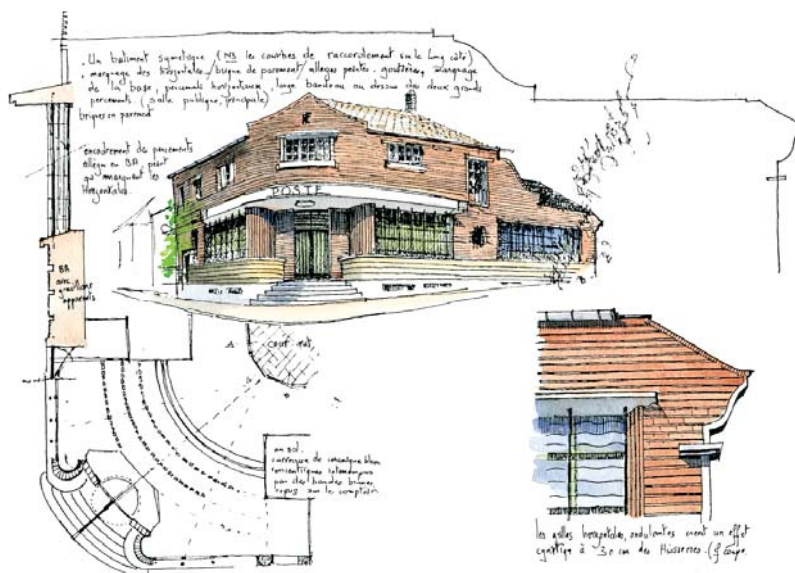 . Un batiment symetrique (NB les courbes de raccordement sur le long coté)
. marquage des horizontales / brique de parement / alleges peintes. gouttières, marquage
de la base, percements horizontaux, large bandeau au dessus des deux grands
percements. (salle publique, principale)
briques en parement
encadrement de percements
allège en BA peint
qui marquent les
Horizontales.
POSTE
BA
avec
gravillons
apparents
A
cour
au sol.
carrelage de céramique blanc
concentriques
par des bandes brunes,
sur le comptoir
les grilles horizontales, ondulantes créent un effet
à 30 cm des Huisseries. (cf coupe.